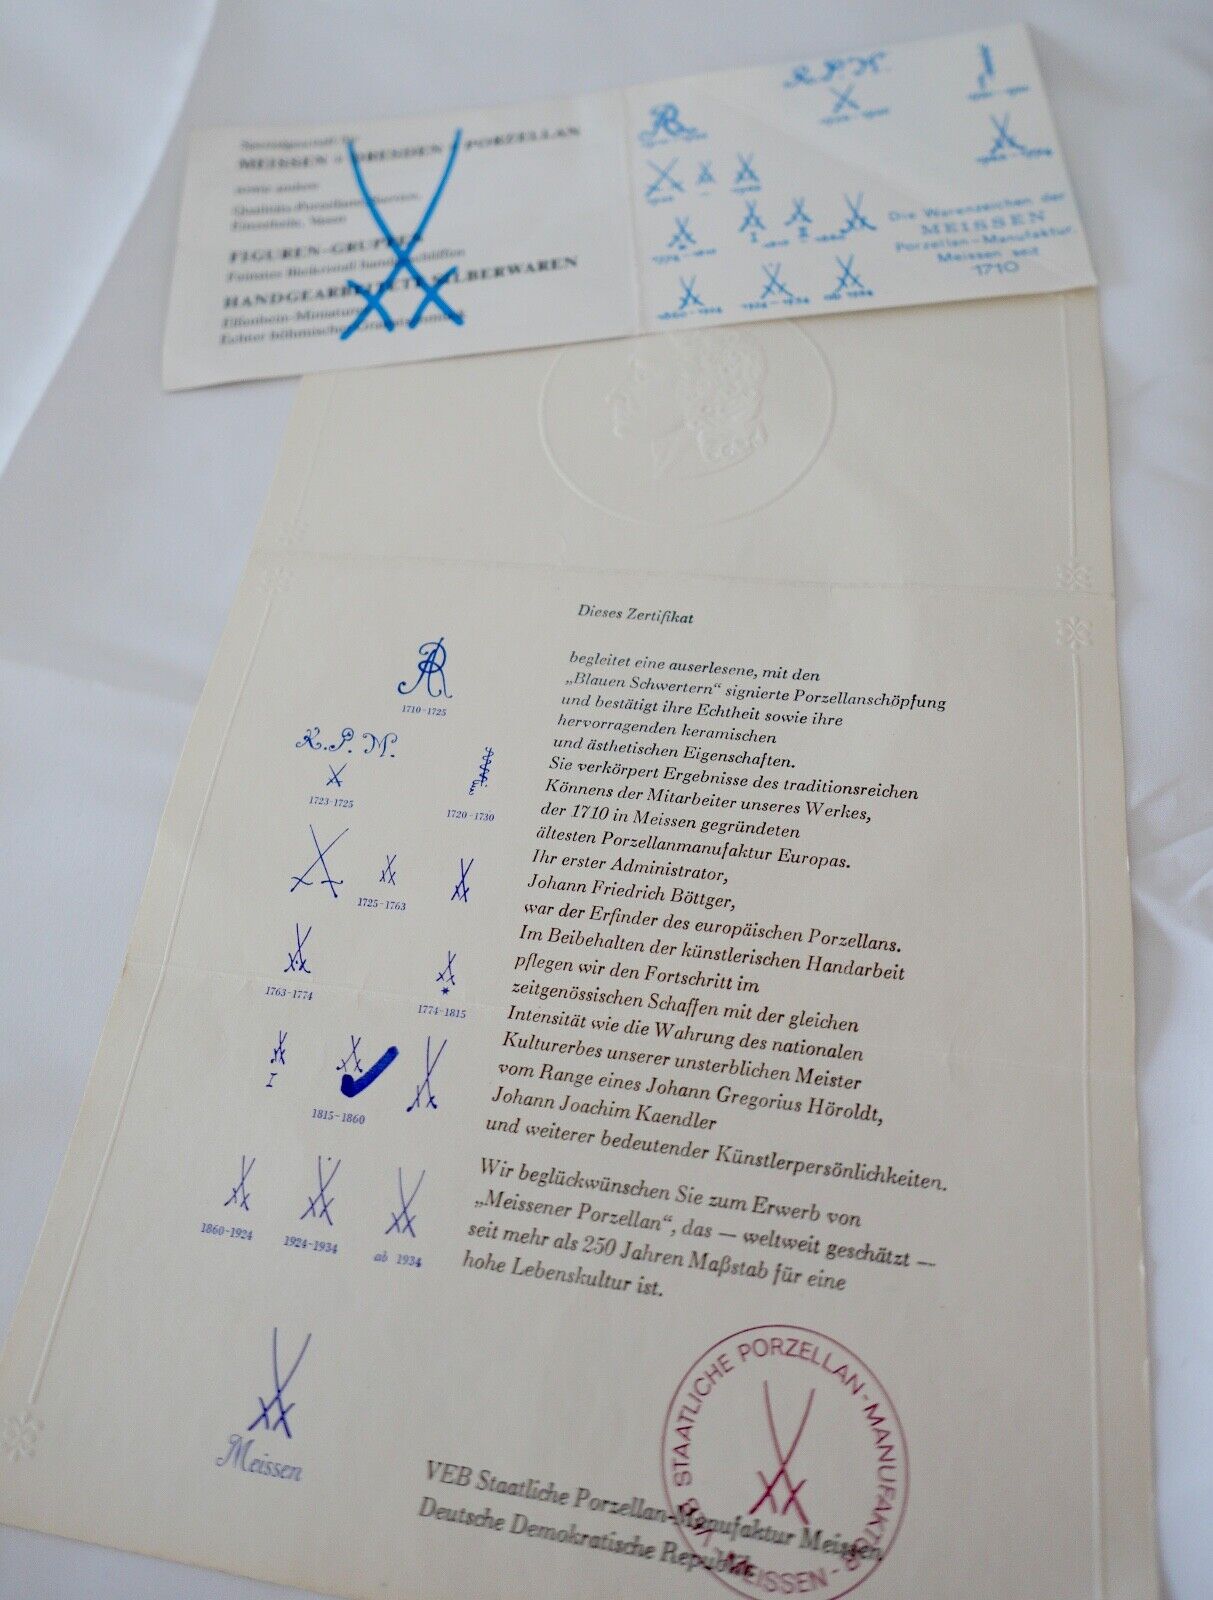 MEISSEN + DRESDEN + PORZELLAN
sowie andere
Qualitäts-Porzellane, Service,
Einzelteile, Vasen
FIGUREN-GRUPPEN
HANDGEARBEITETE SILBERWAREN
Elfenbein-Miniaturen
K.P.M.
AR
Die Warenzeichen der
MEISSEN
Porzellan-Manufaktur.
Meissen seit
1710
I
II
Dieses Zertifikat
begleitet eine auserlesene, mit den
„Blauen Schwertern“ signierte Porzellanschöpfung
und bestätigt ihre Echtheit sowie ihre
hervorragenden keramischen
und ästhetischen Eigenschaften.
Sie verkörpert Ergebnisse des traditionsreichen
Könnens der Mitarbeiter unseres Werkes,
der 1710 in Meissen gegründeten
ältesten Porzellanmanufaktur Europas.
Ihr erster Administrator,
Johann Friedrich Böttger,
war der Erfinder des europäischen Porzellans.
Im Beibehalten der künstlerischen Handarbeit
pflegen wir den Fortschritt im
zeitgenössischen Schaffen mit der gleichen
Intensität wie die Wahrung des nationalen
Kulturerbes unserer unsterblichen Meister
vom Range eines Johann Gregorius Höroldt,
Johann Joachim Kaendler
und weiterer bedeutender Künstlerpersönlichkeiten.
Wir beglückwünschen Sie zum Erwerb von
„Meissener Porzellan“, das — weltweit geschätzt —
seit mehr als 250 Jahren Maßstab für eine
hohe Lebenskultur ist.
AR
1710-1725
K.P.M.
1723-1725
1720-1730
1725-1763
1763-1774
1774-1815
I
1815-1860
1860-1924
1924-1934
ab 1934
Meissen
VEB Staatliche Porzellan-Manufaktur Meissen
Deutsche Demokratische Republik
STAATLICHE PORZELLAN-MANUFAKTUR
MEISSEN